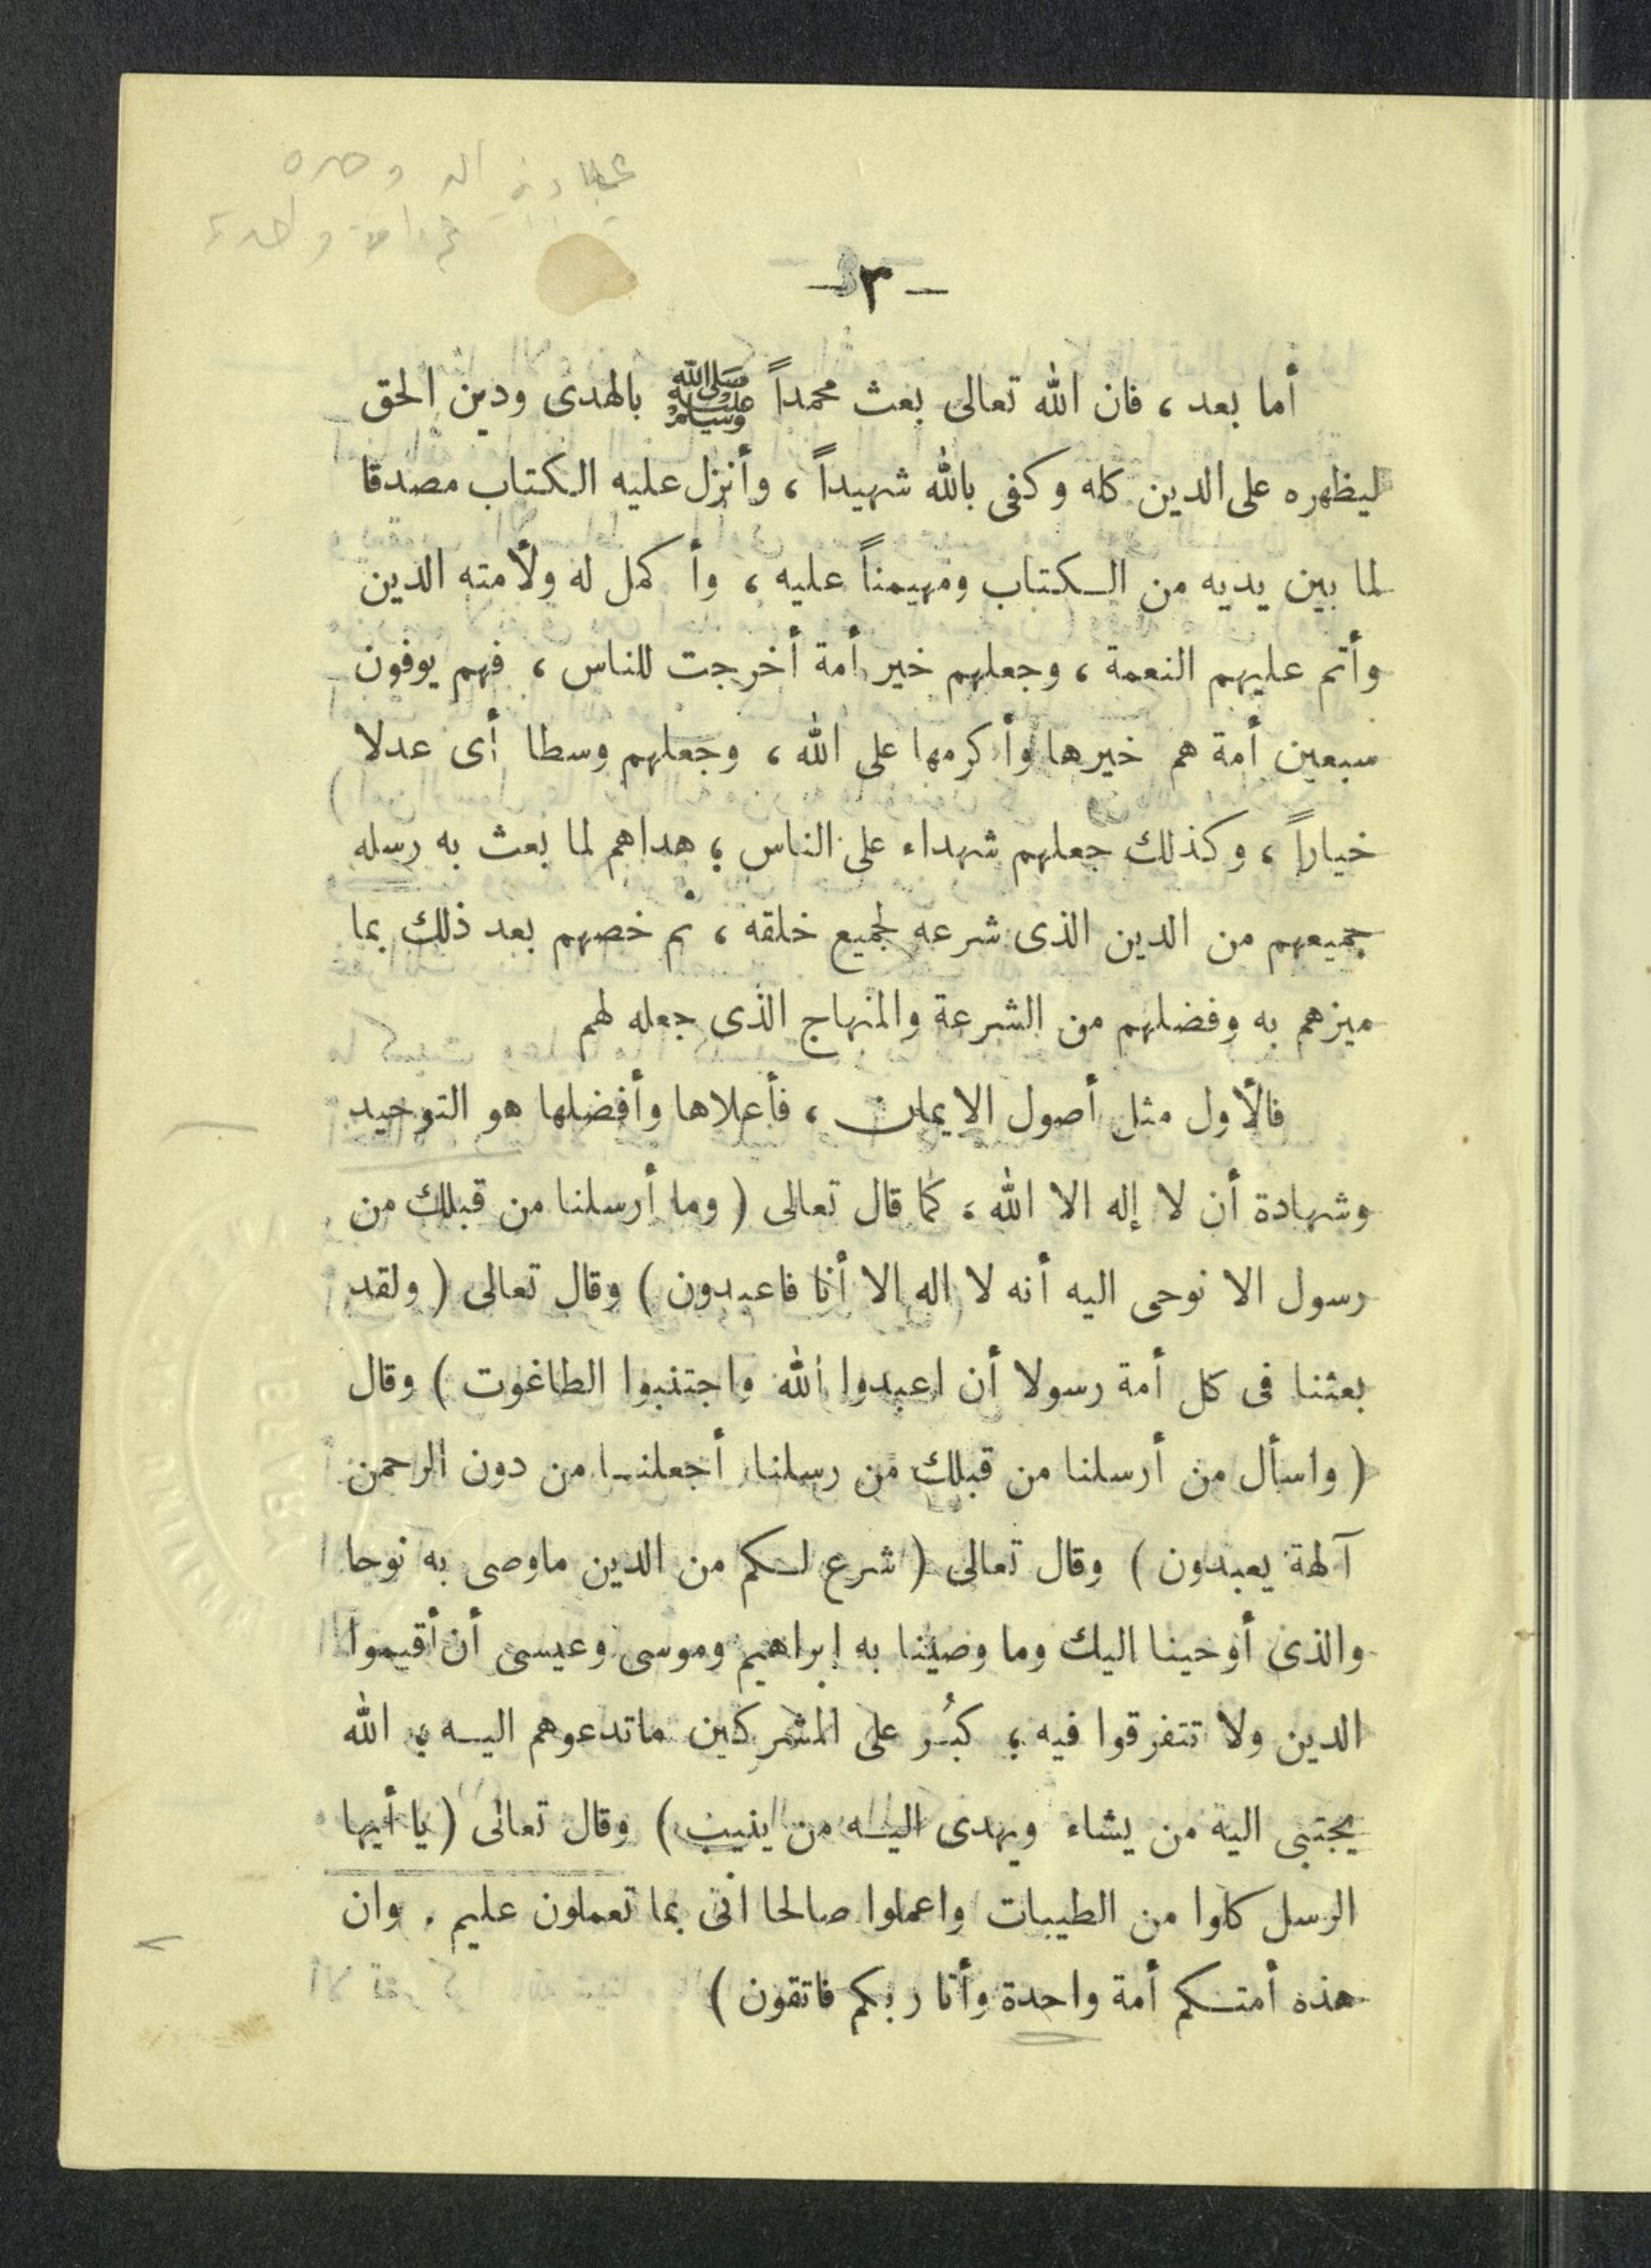 عبادة الله وحده
– ٣ –
أما بعد ، فان الله تعالى بعث محمداً ﷺ بالهدى ودين الحق
ليظهره على الدين كله وكفى بالله شهيداً ، وأنزل عليه الكتاب مصدقا
لما بين يديه من الكتاب ومهيمناً عليه ، وأكمل له ولأمته الدين
وأتم عليهم النعمة ، وجعلهم خير أمة أخرجت للناس ، فهم يوفون
سبعين أمة هم خيرها وأكرمها على الله ، وجعلهم وسطا أى عدلا
خياراً ، وكذلك جعلهم شهداء على الناس ؛ هداهم لما بعث به رسله
جميعهم من الدين الذى شرعه لجميع خلقه ، ثم خصهم بعد ذلك بما
ميزهم به وفضلهم من الشرعة والمنهاج الذى جعله لهم
فالأول مثل أصول الايمان ، فأعلاها وأفضلها هو التوحيد
وشهادة أن لا إله الا الله ، كما قال تعالى ( وما أرسلنا من قبلك من
رسول الا نوحى اليه أنه لا اله الا أنا فاعبدون ) وقال تعالى ( ولقد
بعثنا فى كل أمة رسولا أن اعبدوا الله واجتنبوا الطاغوت ) وقال
( واسأل من أرسلنا من قبلك من رسلنا أجعلنا من دون الرحمن
آلهة يعبدون ) وقال تعالى ( شرع لكم من الدين ماوصى به نوحا
والذى أوحينا اليك وما وصينا به ابراهيم وموسى وعيسى أن أقيموا
الدين ولا تتفرقوا فيه ؛ كبُر على المشركين ماتدعوهم اليه ؛ الله
يجتبى اليه من يشاء ويهدى اليه من ينيب ) وقال تعالى ( يا أيها
الرسل كلوا من الطيبات واعملوا صالحا انى بما تعملون عليم . وان
هذه أمتكم أمة واحدة وأنا ربكم فاتقون )